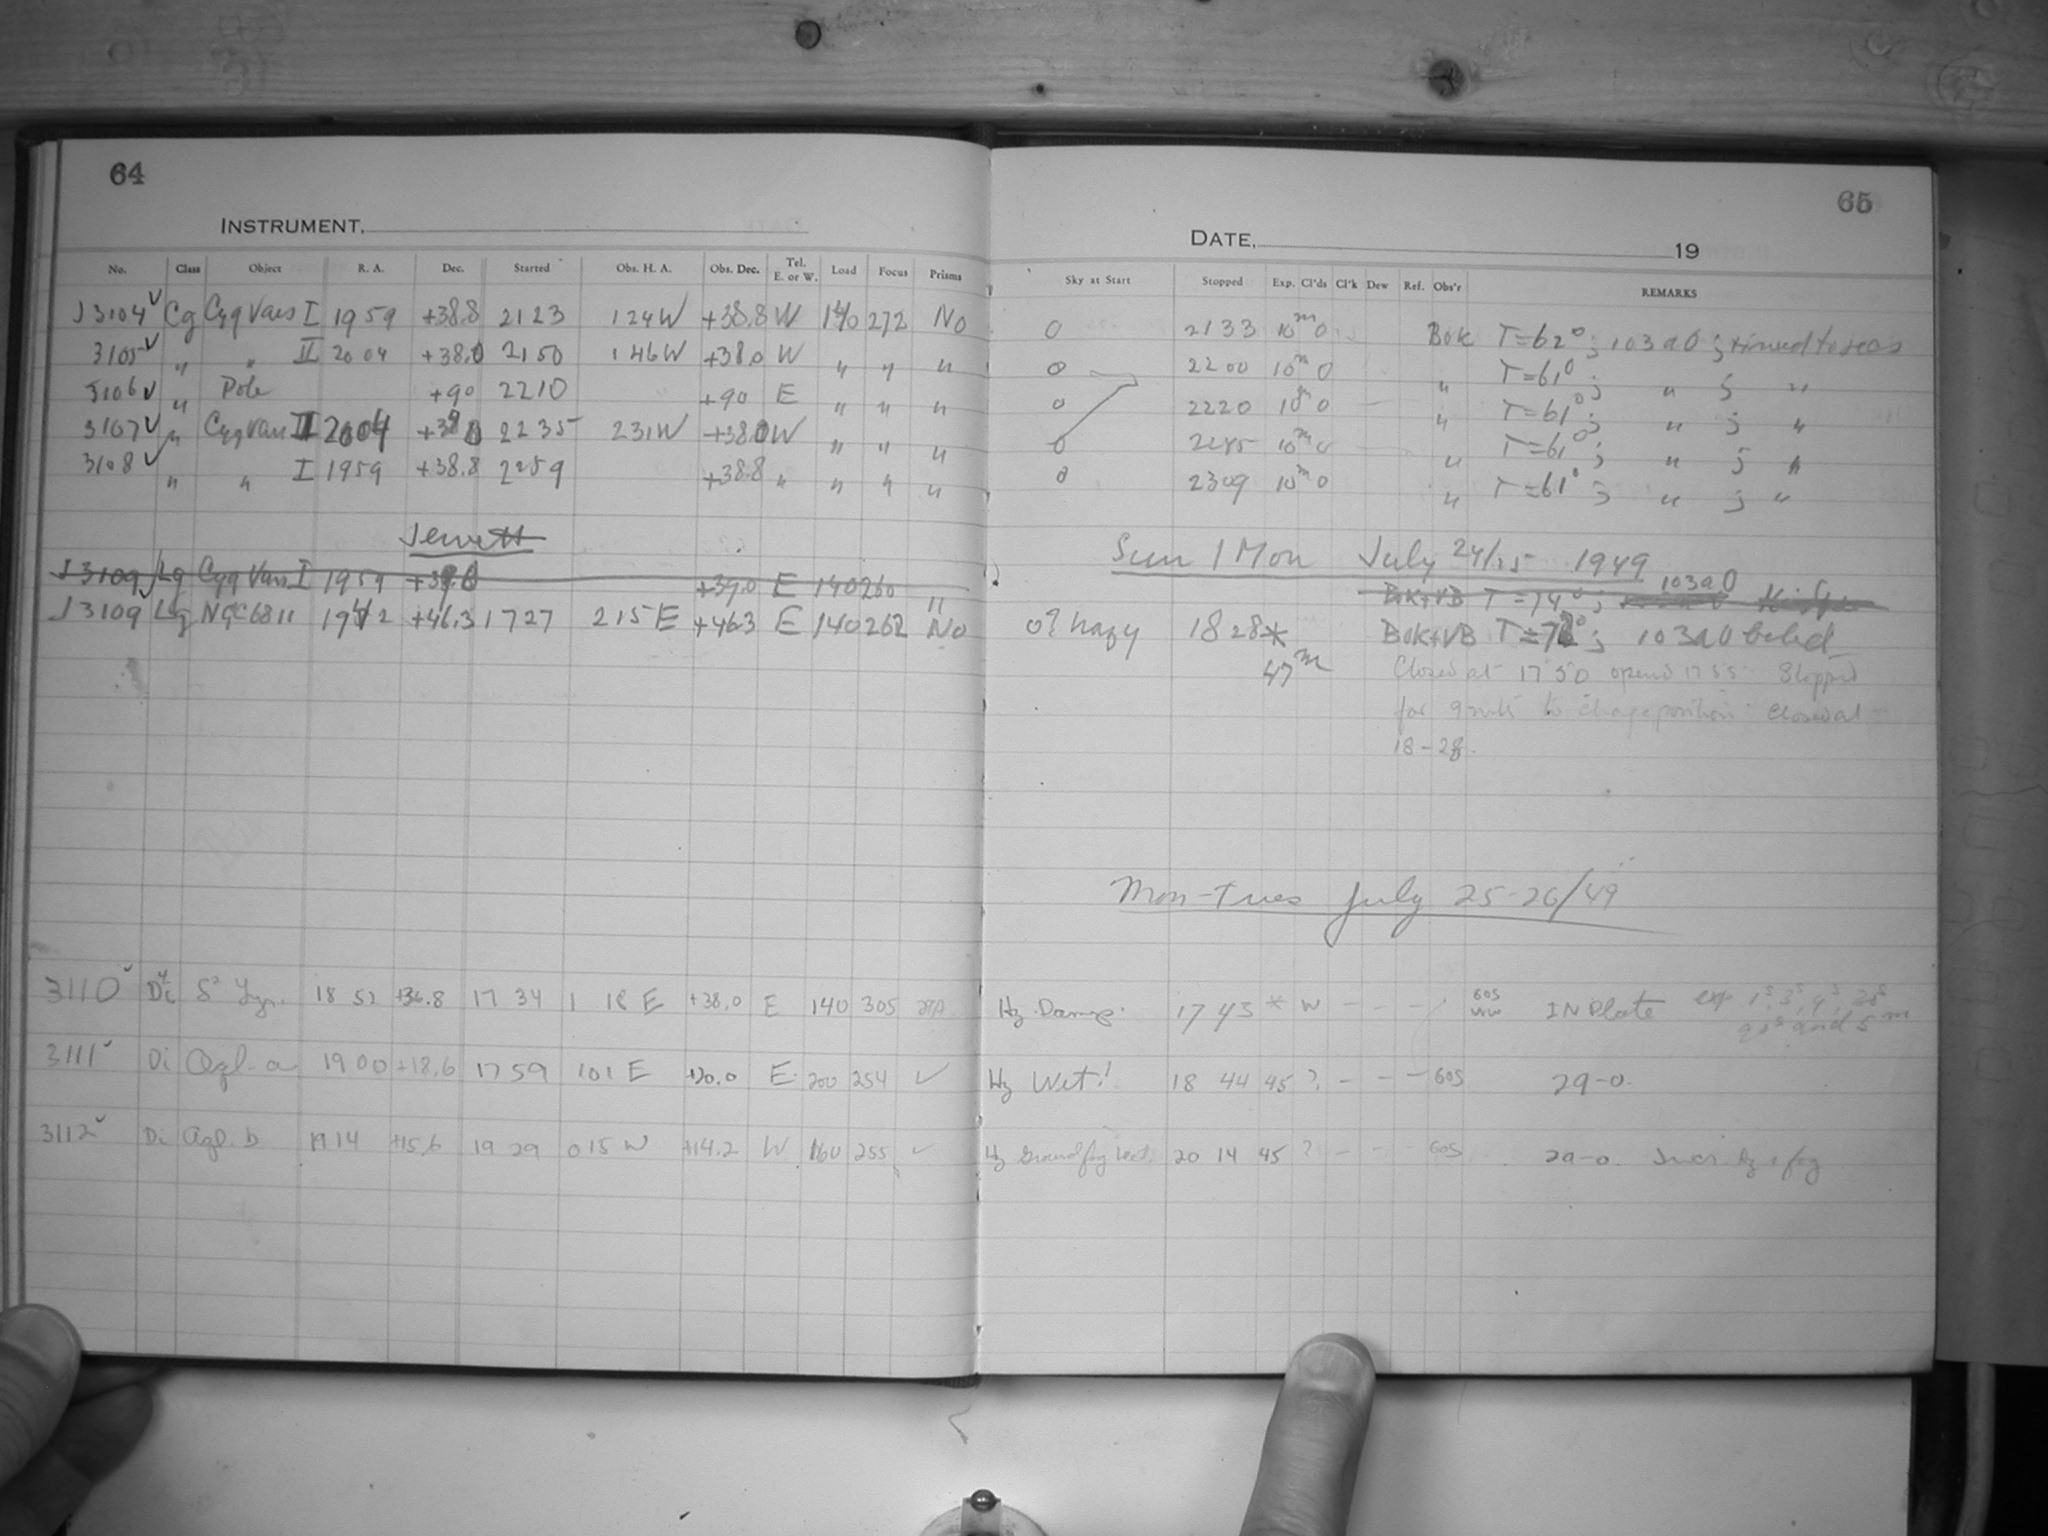 64
INSTRUMENT.
No. Class Object R. A. Dec. Started Obs. H. A. Obs. Dec. Tel. E. or W. Load Focus Prisms
J 3104 ✓ Cg Cyg Vars I 1959 +38.8 2123 124W +38.8 W 140 272 No
3105 ✓ " " II 2004 +38.0 2150 146W +38.0 W " " "
3106 ✓ " Pole +90 2210 +90 E " " "
3107 ✓ " Cyg Vars II 2004 2235 231W +38.0 W " " "
3108 ✓ " " I 1959 +38.8 2259 +38.8 " " " "
Jewett
J 3109 Lg Cyg Vars I 1959 +39.0 E 140 260 "
J 3109 Lg NGC 6811 +46.3 1727 215 E +46.3 E 140 262 No
3110 ✓ 18 52 +36.8 17 34 1 18 E +38.0 E 140 305
3111 ✓ Di Aql. a 19 00 +18.6 17 59 1 01 E +20.0 E 200 254 ✓
3112 ✓ Di Aql. b 19 14 +15.6 19 29 0 15 W +14.2 W 160 255 ✓
65
DATE, 19
Sky at Start Stopped Exp. Cl'ds Cl'k Dew Ref. Obs'r REMARKS
0 2133 10m 0 Bok T=62°; 103a0;
0 2200 10m 0 " T=61°; " ; "
0 2220 10m 0 " T=61°; " ; "
0 2245 10m 0 " T=61°; " ; "
0 2309 10m 0 " T=61°; " ; "
Sun / Mon July 24/25 1949
Bok+VB T=74°; 103a0
0? hazy 1828* Bok+VB 103a0
47m Closed at 1750 opened 1755 Stopped
for to change position. Closed at
18-28.
Mon-Tues July 25-26/49
Hz Damp. 17 43 * W - - - IN Plate exp
Hz Wet! 18 44 45 ? - - - 60S 29-0.
Hz Ground fog 20 14 45 ? - - - 60S 29-0. Hz + fog